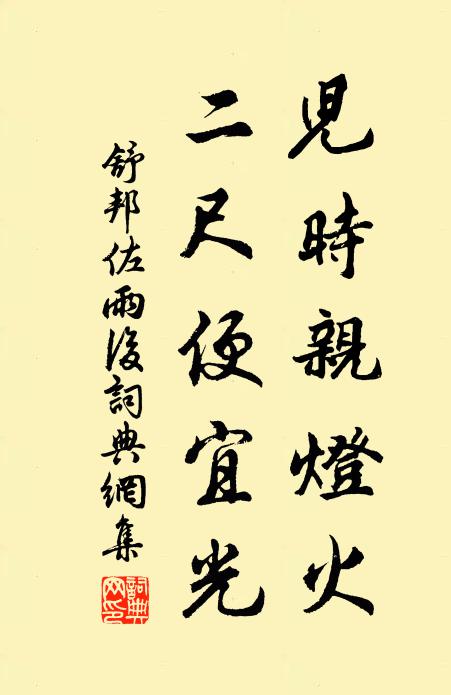 兒時親燈火
二尺便宜光
舒邦佐雨後詞典網集
詞典網印